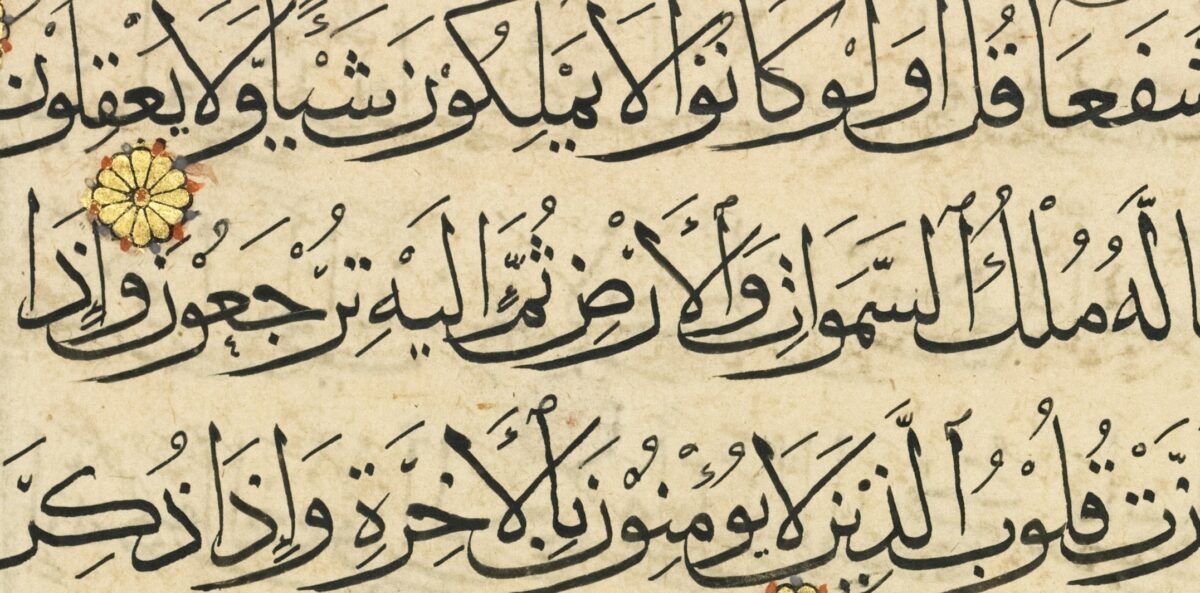 شُفَعَاءَ قُلْ أَوَلَوْ كَانُوا لَا يَمْلِكُونَ شَيْئًا وَلَا يَعْقِلُونَ
لَهُ مُلْكُ ٱلسَّمَوَاتِ وَٱلْأَرْضِ ثُمَّ إِلَيْهِ تُرْجَعُونَ وَإِذَا
زَّتْ قُلُوبُ ٱلَّذِينَ لَا يُؤْمِنُونَ بِٱلْأَخِرَةِ وَإِذَا ذُكِرَ